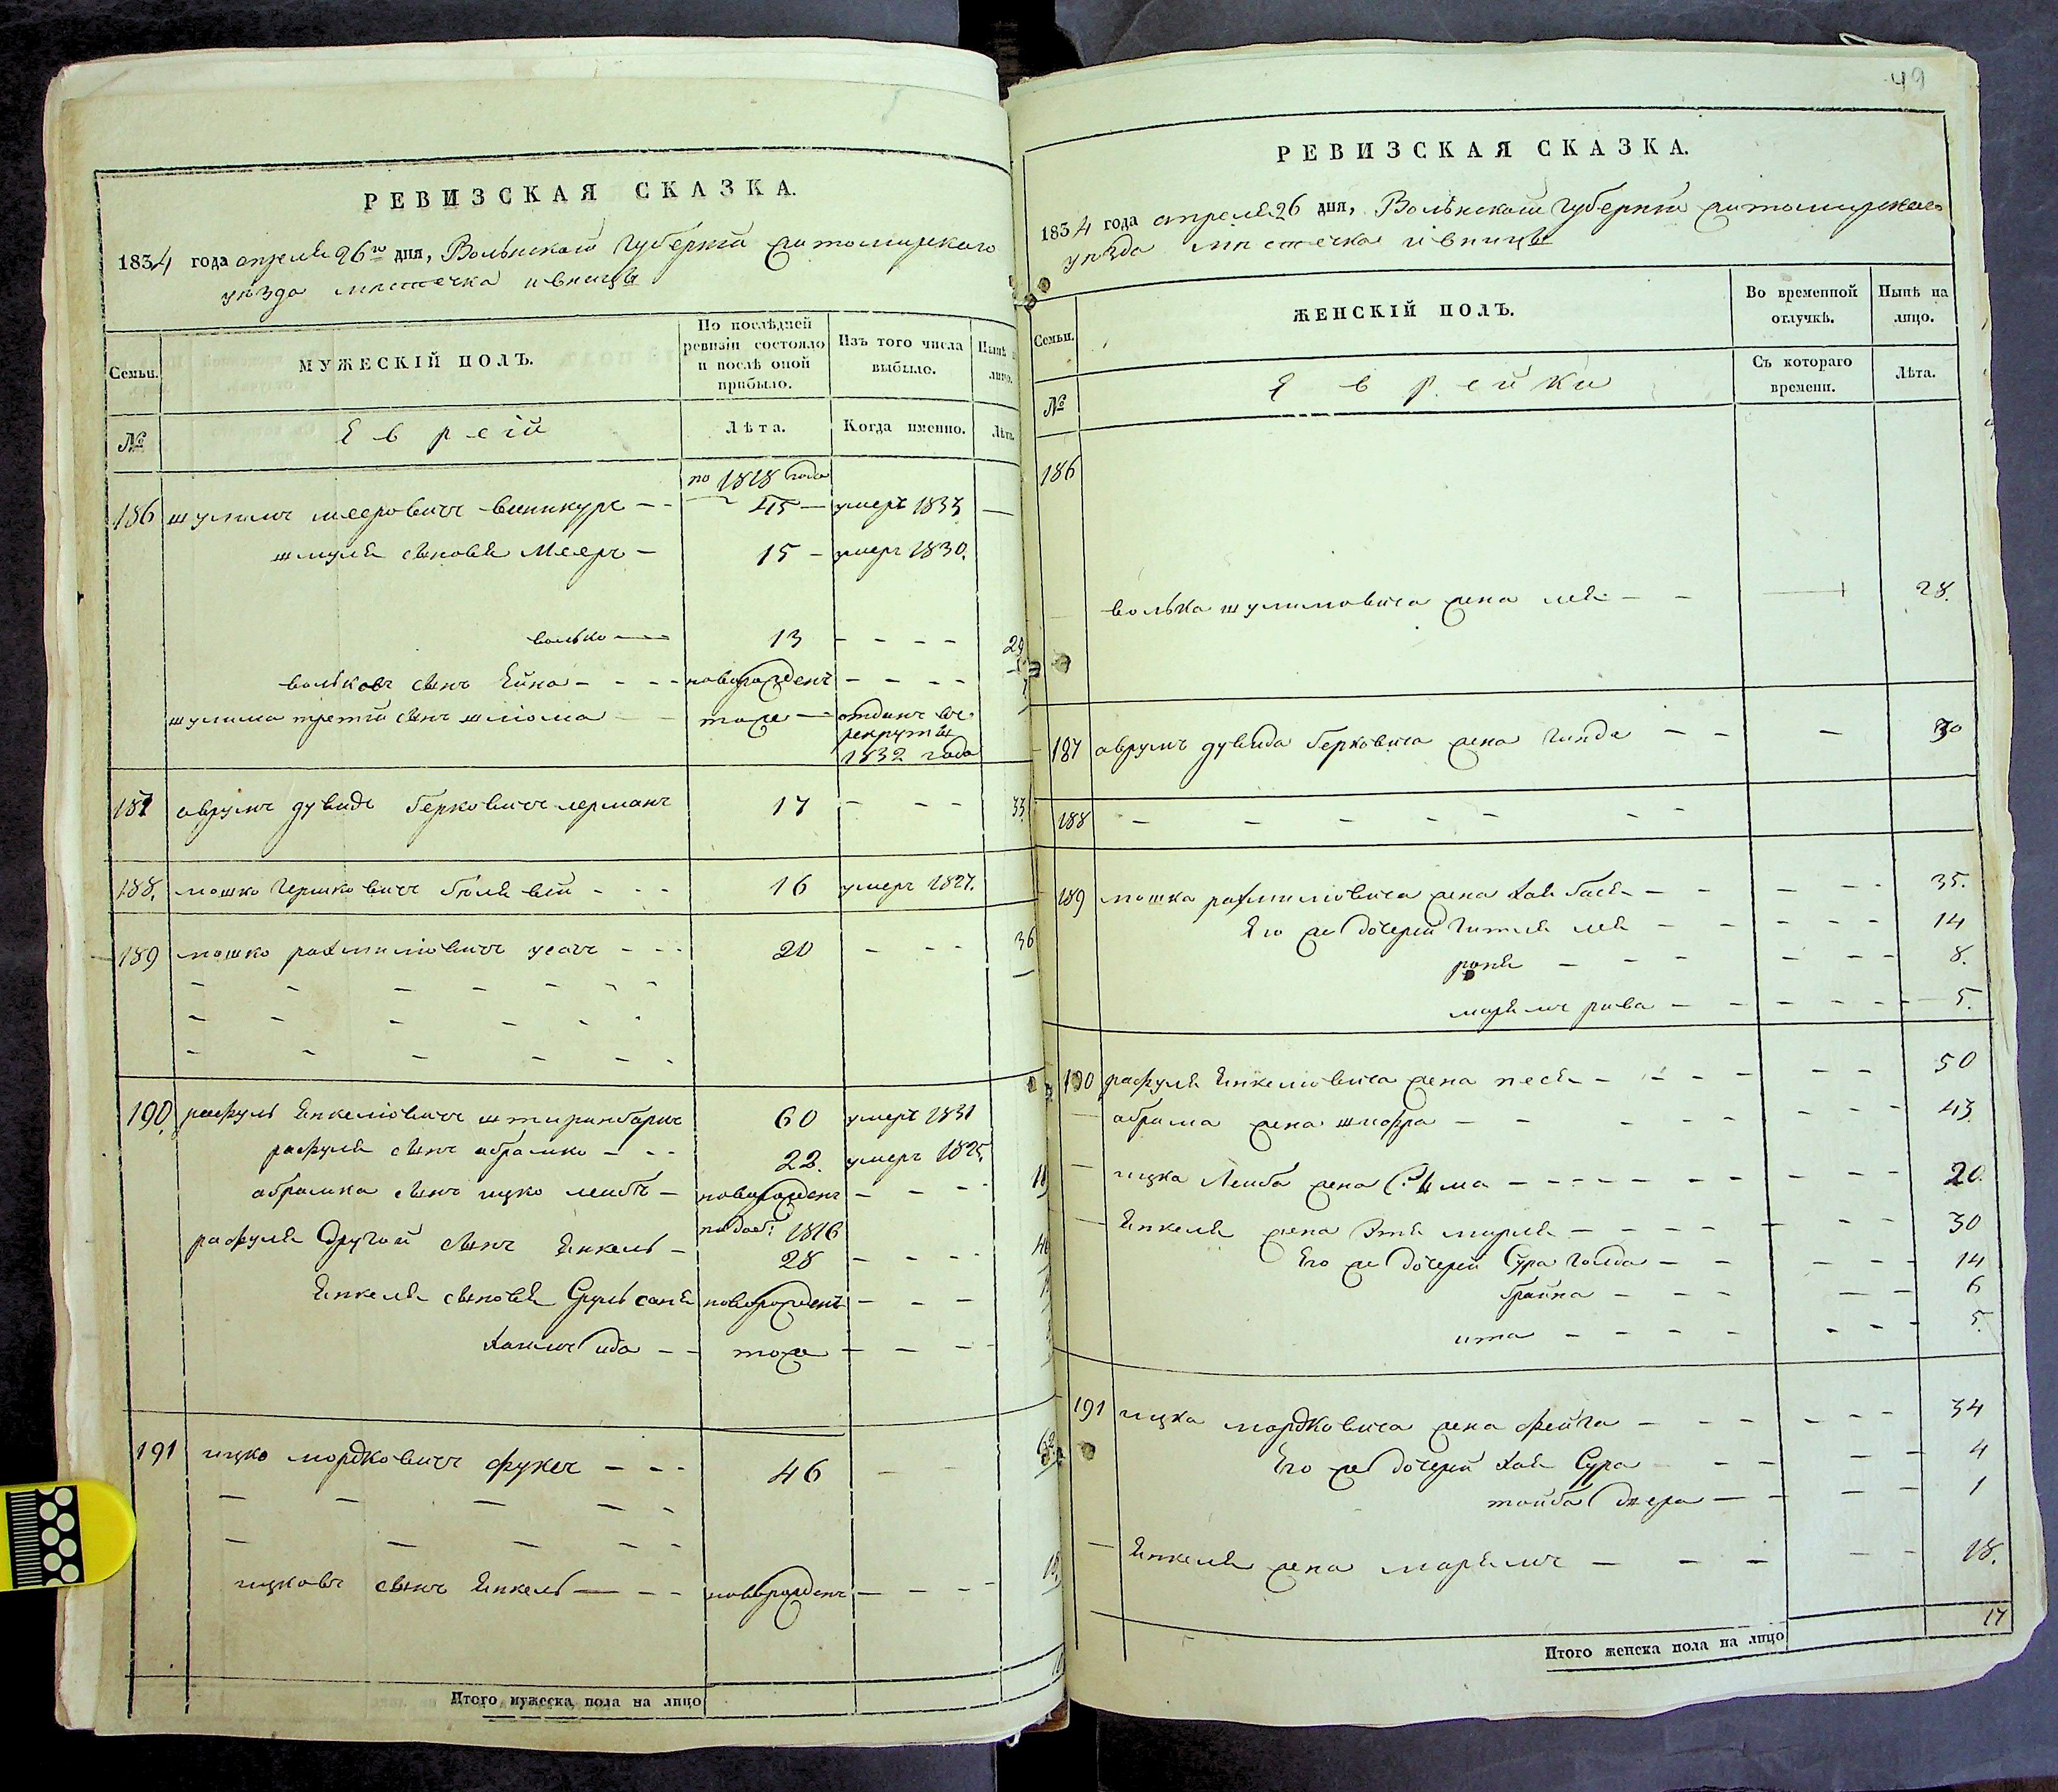 РЕВИЗСКАЯ СКАЗКА.
1834 года апреля 26го дня, Волынской Губернии житомирского
уезда местечка ивницы
Семьи.
МУЖЕСКІЙ ПОЛЪ.
По послѣдней
ревизіи состояло
и послѣ оной
прибыло.
Изъ того числа
выбыло.
Нынѣ
лицо.
№
Еврей
Лѣта.
Когда именно.
Лѣта.
по 1818 года
186 шулимъ мееровичъ винкуръ 45 умеръ 1833
шулима сыновья Мееръ 15 умеръ 1830.
волько 13
вольковъ сынъ Ейна новорожденъ
шулима третий сынъ шлиома тоже отданъ въ
рекруты
1832 года
187 аврумъ дувидъ берковичъ лерманъ 17 33
188. мошко гершковичъ 16 умеръ 1827.
189 мошко рахмиліовичъ усачъ 20 36
190. рафуль Янкеліовичъ 60 умеръ 1831
рафуля сынъ абрамко 22. умеръ 1825.
абрамка сынъ ицко лейбъ новорожденъ 18
1816
рафуля другой сынъ Янкель 28
Янкеля сыновья Сруль новорожденъ
тоже
191 ицко мордковичъ фуксъ 46
ицковъ сынъ Янкель новорожденъ
Итого мужеска пола на лицо
49
РЕВИЗСКАЯ СКАЗКА.
1834 года апреля 26 дня, Волынской Губернии житомирского
уезда местечка ивницы
Семьи.
ЖЕНСКІЙ ПОЛЪ.
Во временной
отлучкѣ.
Нынѣ на
лицо.
№
Еврейки
Съ котораго
времени.
Лѣта.
186
волька шулимовича жена лея 28.
187 аврумъ дувида берковича жена гинда 30
188
189 мошка рахмиліовича жена хая бася 35.
Его же дочерей гитля лея 14
8.
марямъ рива 5.
190 рафуля Янкеліовича жена песя 50
абрама жена шифра 43.
ицка Лейба жена Сима 20.
Янкеля жена Этя мирля 30
Его же дочерей Сура голда 14
брайна 6
ита 5.
191 ицка мордковича жена фейга 34
Его же дочерей хая Сура 4
тойба двера 1
Янкеля жена марямъ 18.
Итого женска пола на лицо 17